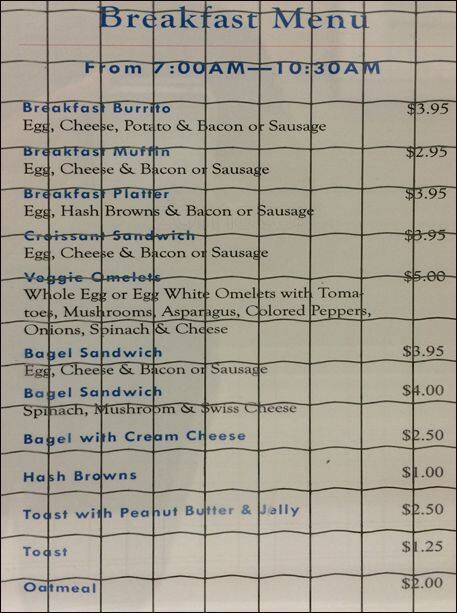 Breakfast Menu
From 7:00AM—10:30AM
Breakfast Burrito $3.95
Egg, Cheese, Potato & Bacon or Sausage
Breakfast Muffin $2.95
Egg, Cheese & Bacon or Sausage
Breakfast Platter $3.95
Egg, Hash Browns & Bacon or Sausage
Croissant Sandwich $3.95
Egg, Cheese & Bacon or Sausage
Veggie Omelets $5.00
Whole Egg or Egg White Omelets with Toma-
toes, Mushrooms, Asparagus, Colored Peppers,
Onions, Spinach & Cheese
Bagel Sandwich $3.95
Egg, Cheese & Bacon or Sausage
Bagel Sandwich $4.00
Spinach, Mushroom & Swiss Cheese
Bagel with Cream Cheese $2.50
Hash Browns $1.00
Toast with Peanut Butter & Jelly $2.50
Toast $1.25
Oatmeal $2.00